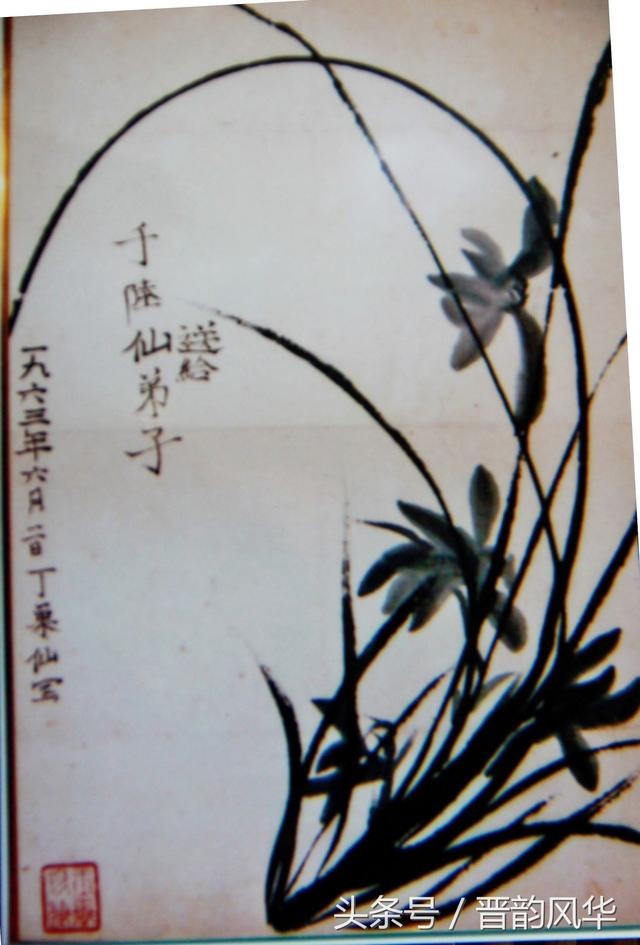 送給
于陸仙弟子
一九六三年六月二日丁菓仙写
头条号 / 晋韵风华